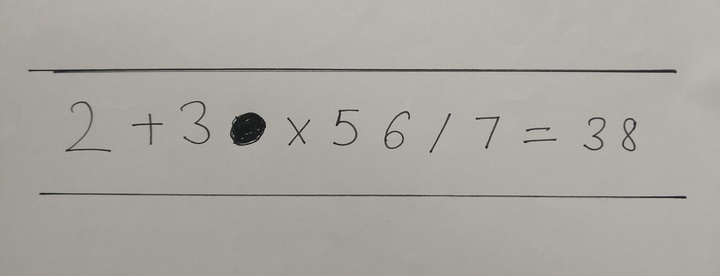 2 + 3 × 5 6 / 7 = 38